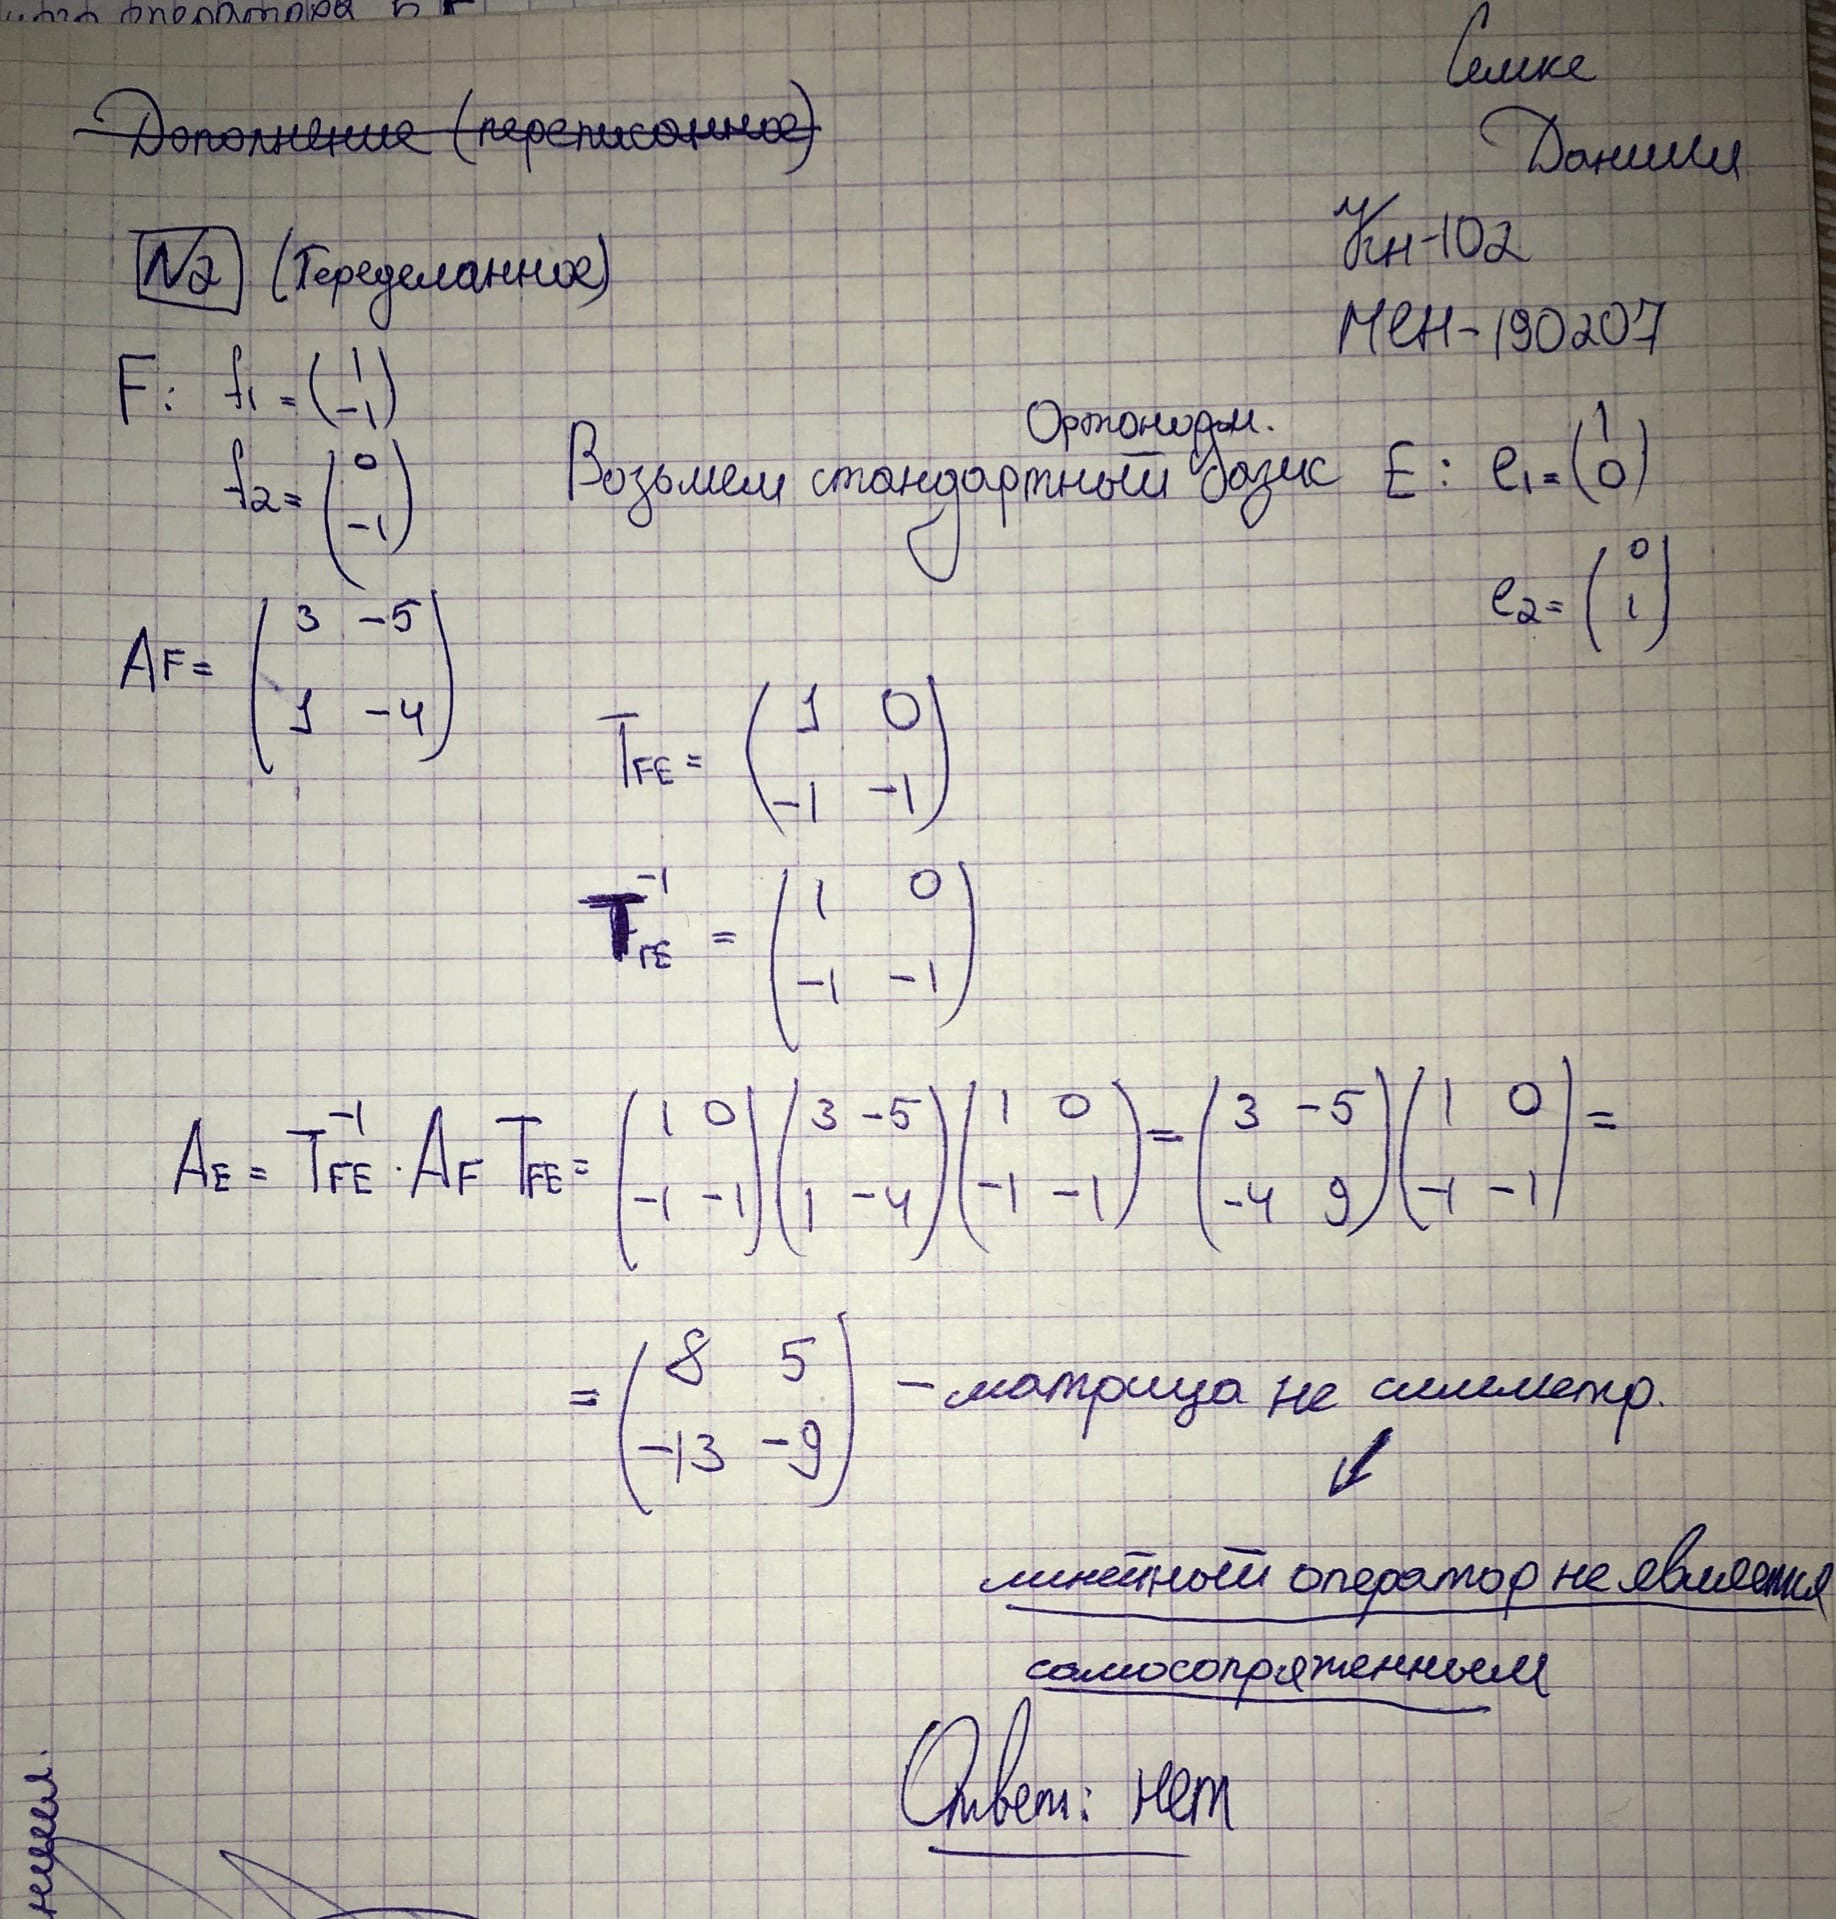 оператора в F
Семке
Даниил
Дополнение (переписанное)
КН-102
№2 (Переделанное)
МЕН-190207
F: f1 = (1 -1)
f2 = (0 -1)
Ортонорм.
Возьмем стандартный базис E: e1 = (1 0)
e2 = (0 1)
AF = (3 -5
1 -4)
TFE = (1 0
-1 -1)
T⁻¹FE = (1 0
-1 -1)
AE = T⁻¹FE · AF TFE = (1 0 / -1 -1) (3 -5 / 1 -4) (1 0 / -1 -1) = (3 -5 / -4 9) (1 0 / -1 -1) =
= (8 5 / -13 -9) - матрица не симметр.
↙
линейный оператор не является
самосопряженным
Ответ: нет